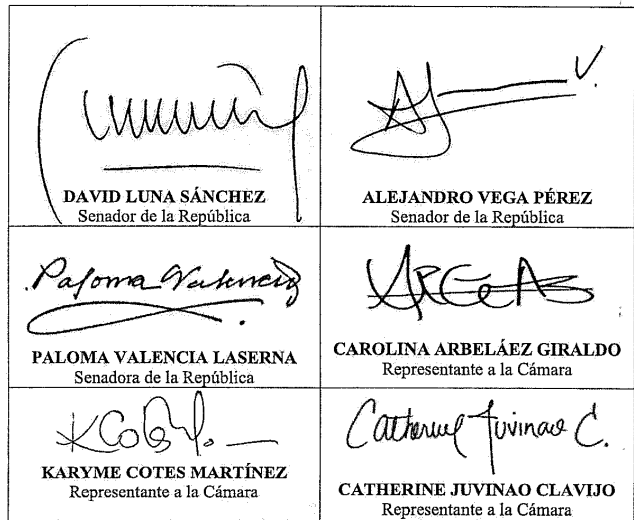 DAVID LUNA SÁNCHEZ
Senador de la República
V.
ALEJANDRO VEGA PÉREZ
Senador de la República
Paloma Valencia
PALOMA VALENCIA LASERNA
Senadora de la República
CAROLINA ARBELÁEZ GIRALDO
Representante a la Cámara
KARYME COTES MARTÍNEZ
Representante a la Cámara
Catherine Juvinao C.
CATHERINE JUVINAO CLAVIJO
Representante a la Cámara